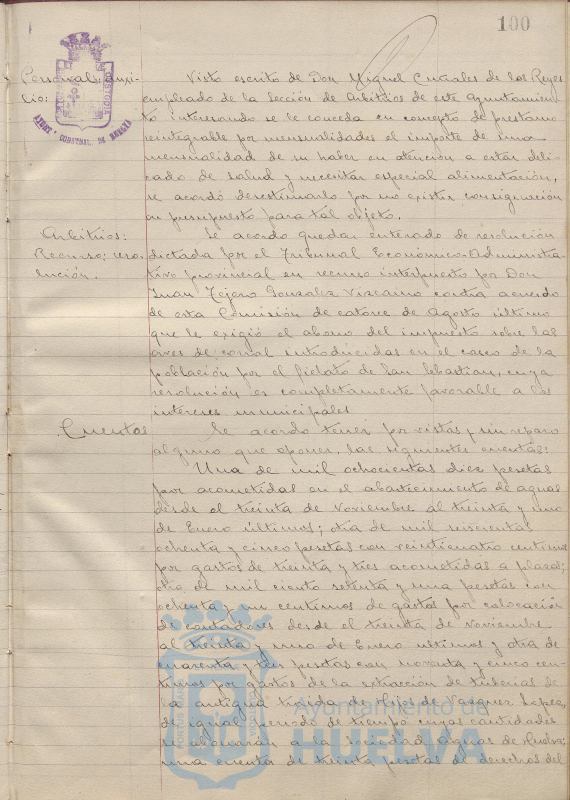 100
AYUNT. CONSTNAL. DE HUELVA
CUSTODIA
Personal: auxi-
lio:
Visto escrito de Don Miguel Cuñales de los Reyes
empleado de la Sección de Arbitrios de este Ayuntamien-
to interesando se le conceda en concepto de prestamo
reintegrable por mensualidades el importe de una
mensualidad de su haber en atención a estar deli-
cado de salud y necesitar especial alimentación,
se acordó desestimarlo por no existir consignación
en presupuesto para tal objeto.
Arbitrios:
Recurso; reso-
lución.
Se acordo quedar enterado de resolución
dictada por el Tribunal Económico-Administra-
tivo provincial en recurso interpuesto por Don
Juan Tejero Gonzalez Vizcaino contra acuerdo
de esta Comisión de catorce de Agosto último
que le exigió el abono del impuesto sobre las
aves de corral introducidas en el casco de la
población por el fielato de San Sebastian, cuya
resolución es completamente favorable a los
intereses municipales.
Cuentas
Se acordo tener por vistas y sin reparo
alguno que oponer, las siguientes cuentas:
Una de mil ochocientas diez pesetas
por acometidas en el abastecimiento de aguas
desde el treinta de Noviembre al treinta y uno
de Enero últimos; otra de mil seiscientas
ochenta y cinco pesetas con veinticuatro centimos
por gastos de treinta y tres acometidas a plazos;
otra de mil ciento setenta y una pesetas con
ochenta y un centimos de gastos por colocación
de contadores desde el treinta de Noviembre
al treinta y uno de Enero ultimos y otra de
cuarenta y tres pesetas con noventa y cinco cen-
timos por gastos de la extracción de tuberias de
la antigua tienda de Hijos de Vazquez Lopez,
de igual periodo de tiempo cuyas cantidades
se abonarán a la Sociedad Aguas de Huelva:
una cuenta de treinta pesetas de derechos del
Ayuntamiento de
HUELVA